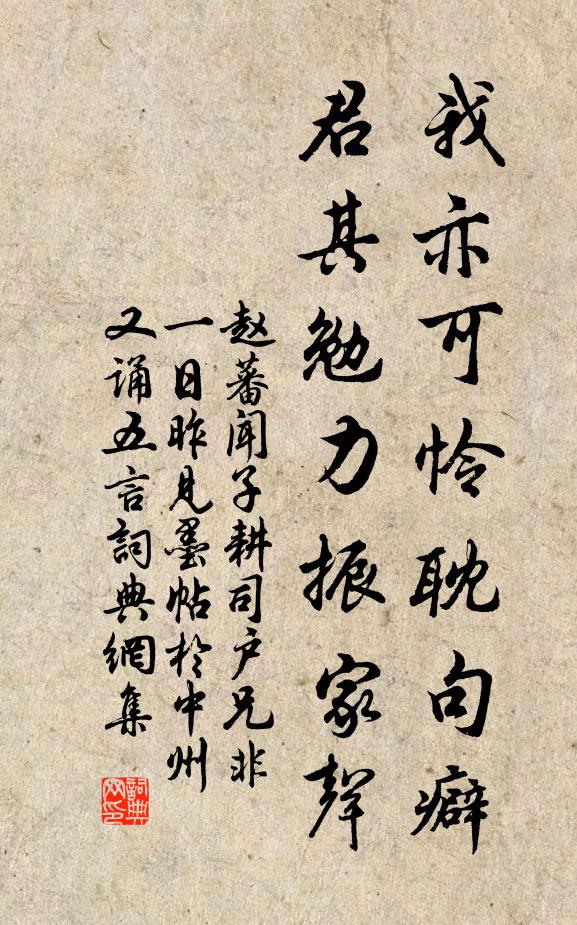 我亦可怜耽句癖
君其勉力振家聲
赵蕃闻子耕司户兄非
一日昨見墨帖於中州
又诵五言詞典網集
詞典
网印